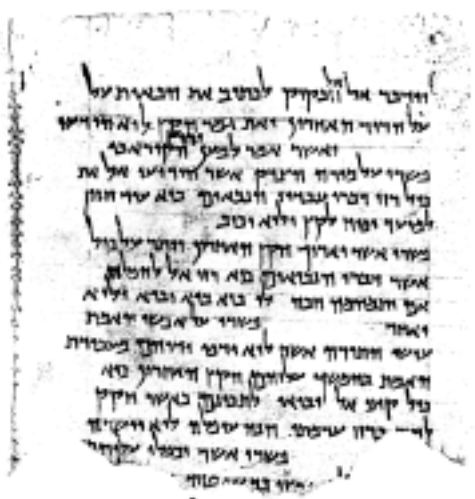 וידבר אל אל חבקוק לכתוב את הבאות על
על הדור האחרון ואת גמר הקץ לוא הודעו
ואשר אמר למען ירוץ הקורא בו
פשרו על מורה הצדק אשר הודיעו אל את
כול רזי דברי עבדיו הנבאים כיא עוד חזון
למועד יפיח לקץ ולוא יכזב
פשרו אשר יארוך הקץ האחרון ויתר על כול
אשר דברו הנביאים כיא רזי אל להפלה
אם יתמהמה חכה לו כיא בוא יבוא ולוא
יאחר פשרו על אנשי האמת
עושי התורה אשר לוא ירפו ידיהם מעבודת
האמת בהמשך עליהם הקץ האחרון כיא
כול קיצי אל יבואו לתכונם כאשר חקק
ערמתו הנה עופלה לוא יושרה
פשרו אשר יכפלו עליהם